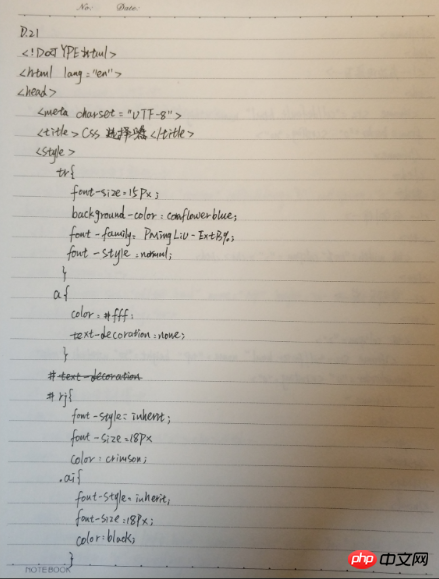 No.    Date:
D.21
<!DOCTYPE html>
<html lang="en">
<head>
<meta charset="UTF-8">
<title>Css 选择器</title>
<style>
tr{
font-size:15px;
background-color: cornflowerblue;
font-family: PMingLiU-ExtB;
font-style:normal;
}
a{
color:#fff;
text-decoration:none;
}
#text-decoration
#rj{
font-style:inherit;
font-size:18px
color:crimson;
.ai{
font-style:inherit;
font-size:18px;
color:black;
}
NOTEBOOK
php 中文网